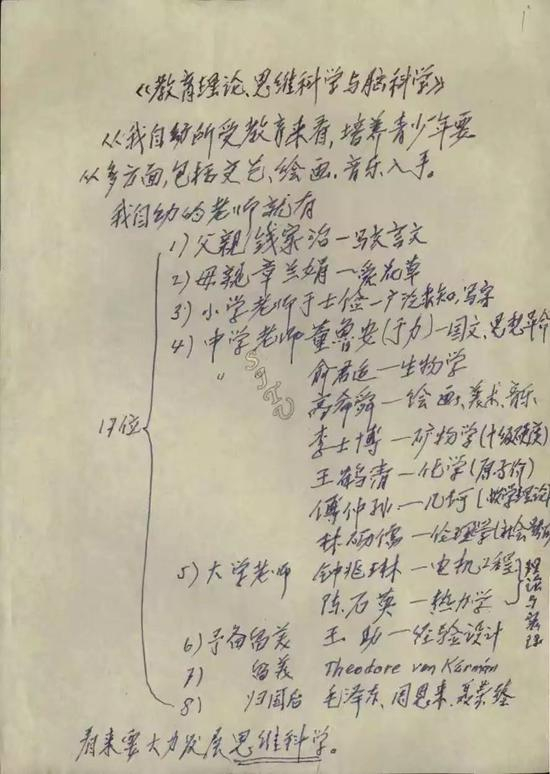 《教育理论、思维科学与脑科学》
从我自幼所受教育来看，培养青少年要
从多方面，包括文艺、绘画、音乐入手。
我自幼的老师就有
1）父親 钱家治—写文言文
2）母親 章兰娟—爱花草
3）小学老师 于士俭—广泛求知，写字
4）中学老师 董鲁安（于力）—国文、思想革命
〃 俞君适—生物学
高希舜—绘画、美术、音乐
17位
李士博—矿物学（十级硬度）
王鹤清—化学（原子价）
傅仲孙—几何（数学理论）
林砺儒—伦理学（社会
5）大学老师 钟兆琳—电机工程
陈石英—热力学
理论与实理
6）予备留美 王助—经验设计
7）留美 Theodore von Kármán
8）归国后 毛泽东、周恩来、聂荣臻
看来要大力发展思维科学。
SJTU